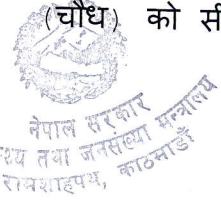 (चौध) को
नेपाल सरकार
तथा जनसंख्या मन्त्रालय
रामशाहपथ, काठमाडौँ